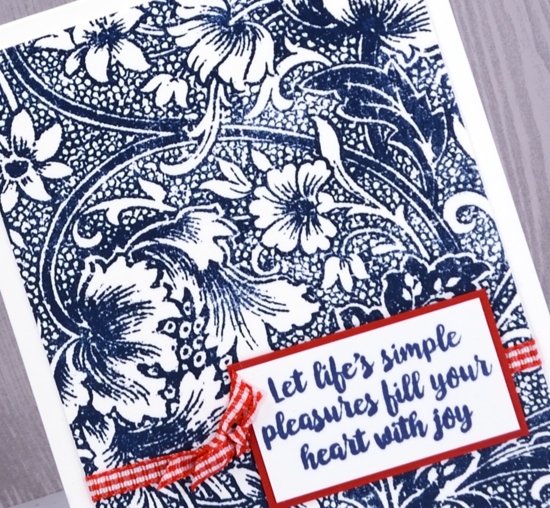 Let life's simple
pleasures fill your
heart with joy